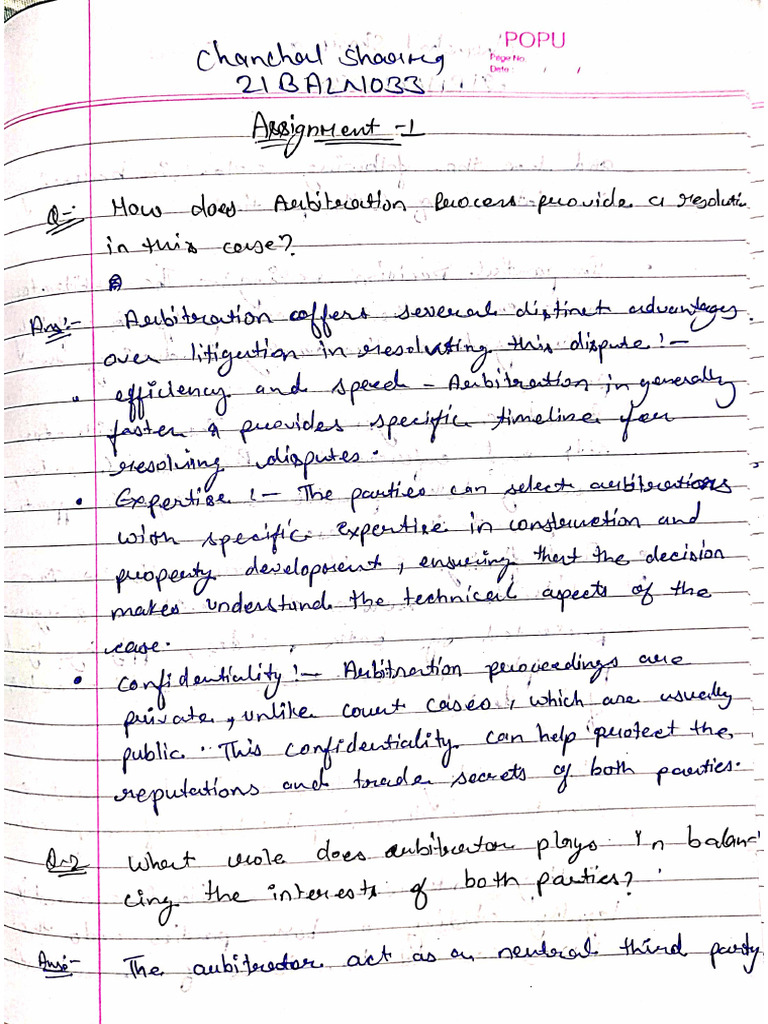 POPU
Page No.
Date: / /
Chanchal Sharma
21BALN1033
Assignment -1
Q-: How does Arbitration Process provide a resolution
in this case?
Ans:- Arbitration offers several distinct advantages
over litigation in resolvting this dispute :-
• efficiency and speed - Arbitration in generally
faster & provides specific timeline for
resolving disputes.
• Expertise :- The parties can select arbitrations
with specific expertise in construction and
property development, ensuring that the decision
makes understand the technical aspects of the
case.
• Confidentiality :- Arbitration proceedings are
private, unlike court cases, which are usually
public. This confidentiality can help protect the
reputations and trade secrets of both parties.
Q-2 What role does arbitrator plays in balan-
cing the interests of both parties?
Ans:- The arbitrator act as a neutral third party